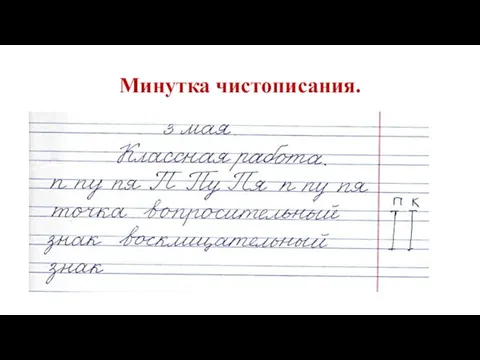 Минутка чистописания.
3 мая.
Классная работа.
п пу пя П Пу Пя п пу пя
точка вопросительный
знак восклицательный
знак
П К